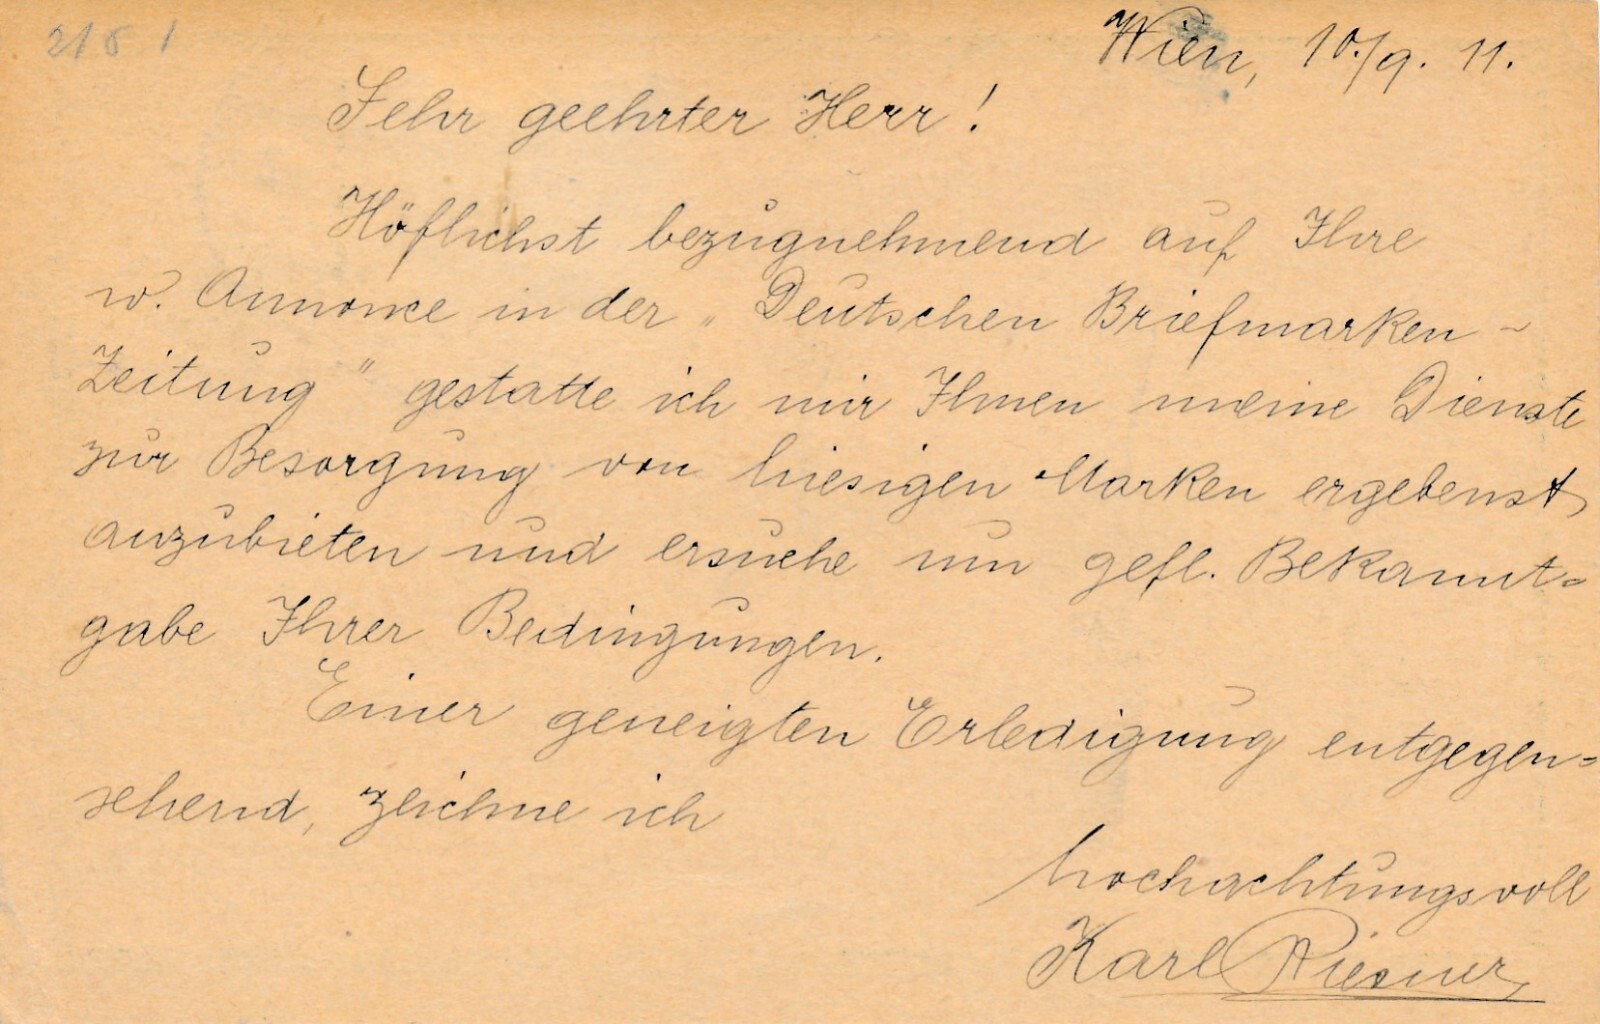 2161
Wien, 10./9. 11.
Sehr geehrter Herr!
Höflichst bezugnehmend auf Ihre
w. Annonce in der „Deutschen Briefmarken-
Zeitung" gestatte ich mir Ihnen meine Dienste
zur Besorgung von hiesigen Marken ergebenst
anzubieten und ersuche um gefl. Bekannt=
gabe Ihrer Bedingungen.
Einer geneigten Erledigung entgegen=
sehend, zeichne ich
hochachtungsvoll
Karl Riesner